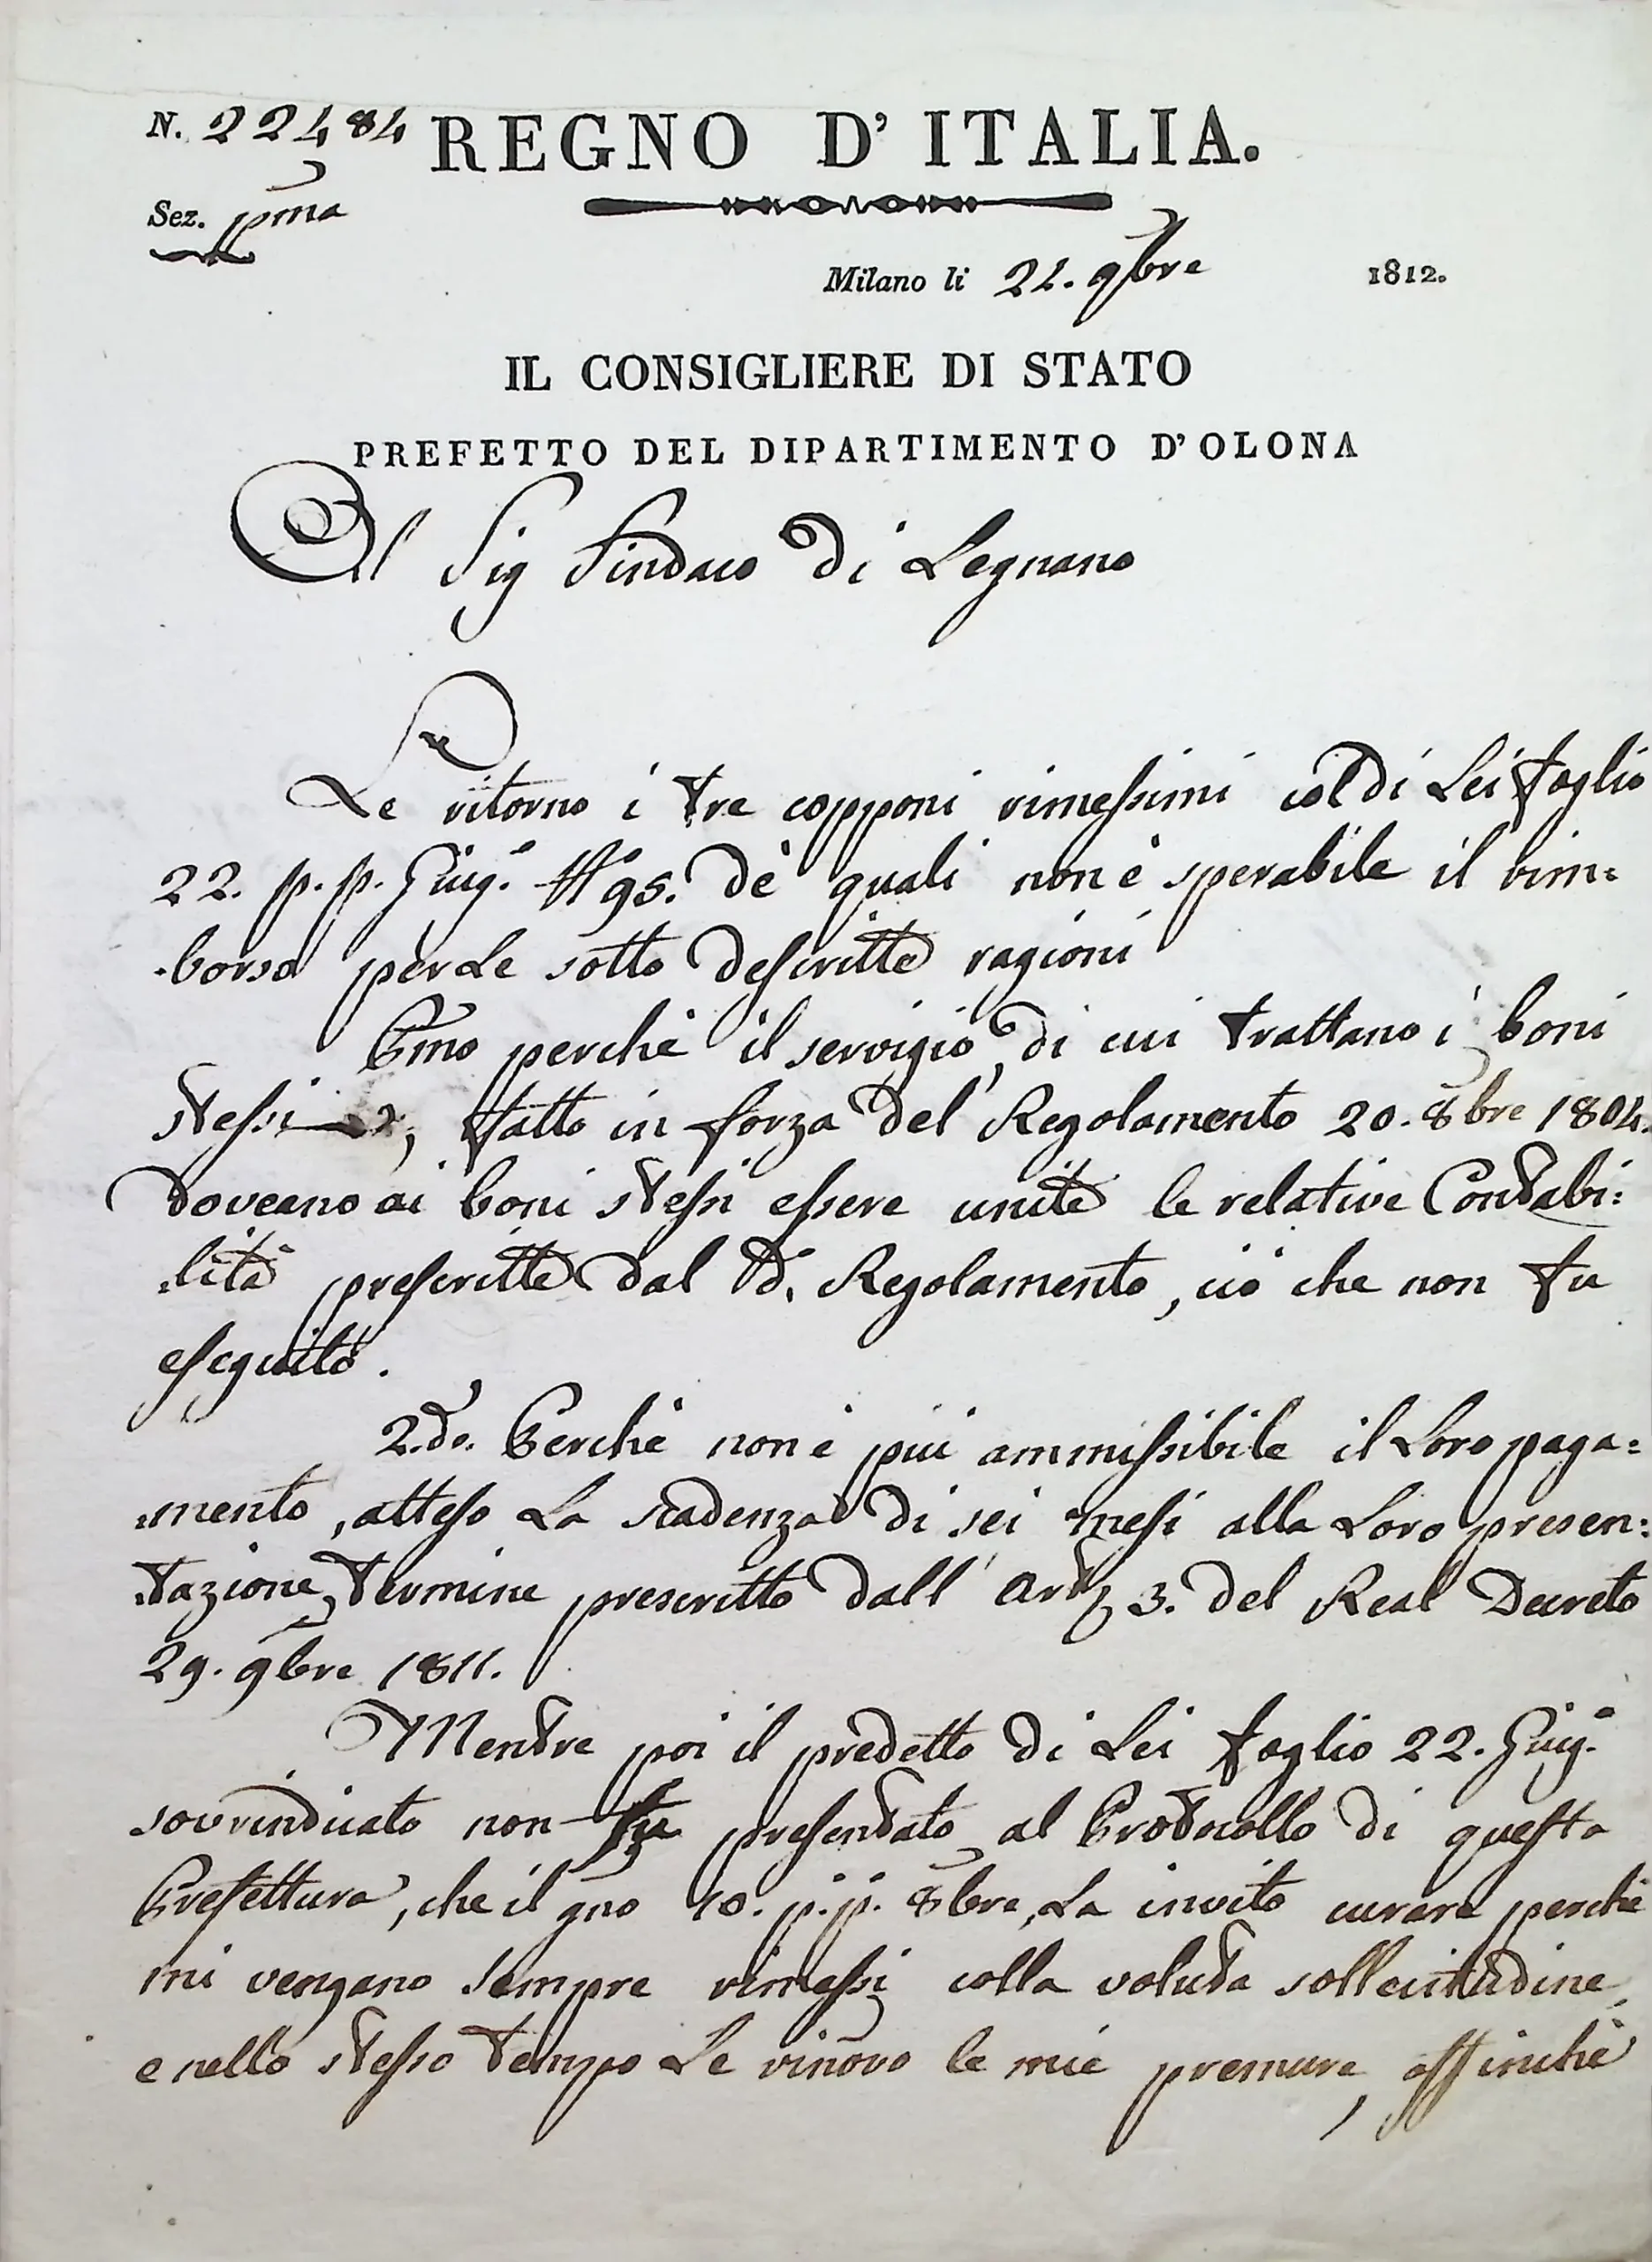 N. 22484 REGNO D'ITALIA.
Sez. pma
Milano li 21. 9bre 1812.
IL CONSIGLIERE DI STATO
PREFETTO DEL DIPARTIMENTO D'OLONA
Al Sig Sindaco di Legnano
Le ritorno i tre copponi rimessimi col di Lei foglio
22. p. p. Giug.o N.o 95. de' quali non è sperabile il rim=
=borso per le sotto descritte ragioni
Pmo perchè il servigio, di cui trattano i boni
stessi, fatto in forza del Regolamento 20. 8bre 1804.
doveano ai boni stessi essere unite le relative Contabi=
=lità prescritte dal d.o Regolamento, ciò che non fu
eseguito.
2.do. Perchè non è più ammissibile il Loro paga=
=mento, atteso La scadenza di sei mesi alla Loro presen=
=tazione, termine prescritto dall' art. 3. del Real Decreto
29. 9bre 1811.
Mentre poi il predetto di Lei foglio 22. Giug.o
sovrindicato non fu presentato al Protocollo di questa
Prefettura, che il gno 10. p. p. 8bre, La invito curare perchè
mi vengano sempre rimessi colla voluta sollecitudine,
e nello stesso tempo Le rinovo le mie premure, affinchè